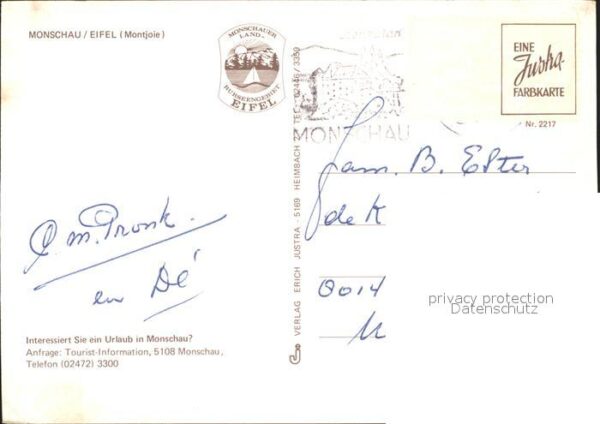 MONSCHAU / EIFEL (Montjoie)
MONSCHAUER
LAND-
RURSEENGEBIET
EIFEL
MONSCHAU
EINE
Justra
FARBKARTE
Nr. 2217
Fam. B. Elter
de K
8014
M
privacy protection
Datenschutz
C. M. Pronk.
en Dé
Interessiert Sie ein Urlaub in Monschau?
Anfrage: Tourist-Information, 5108 Monschau,
Telefon (02472) 3300
VERLAG ERICH JUSTRA - 5169 HEIMBACH 2 - TEL. 02446 / 3359